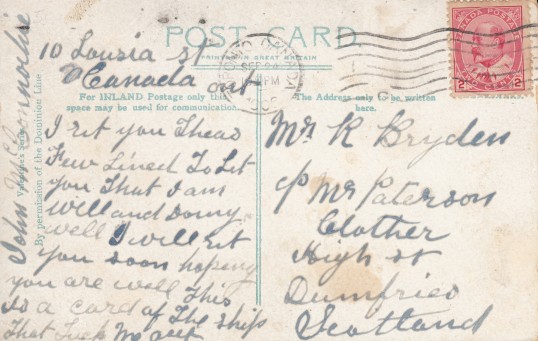 POST CARD
PRINTED IN GREAT BRITAIN
10 Lousia st
Canada ont
For INLAND Postage only this
space may be used for communication
The Address only to be written
here.
TORONTO CANADA
SEP 24
PM
CANADA POSTAGE
2 CENTS 2
I rit you Theas
Few Lined To Let
you That I am
Will and Doiny
well I will rit
you soon hoping
you are well This
is a card of The Ship
That Tuck Me out
Mr R Bryden
c/o Mr Paterson
Clother
High st
Dumfries
Scotland
John McConnochie
Valentine's Series
By permission of the Dominion Line